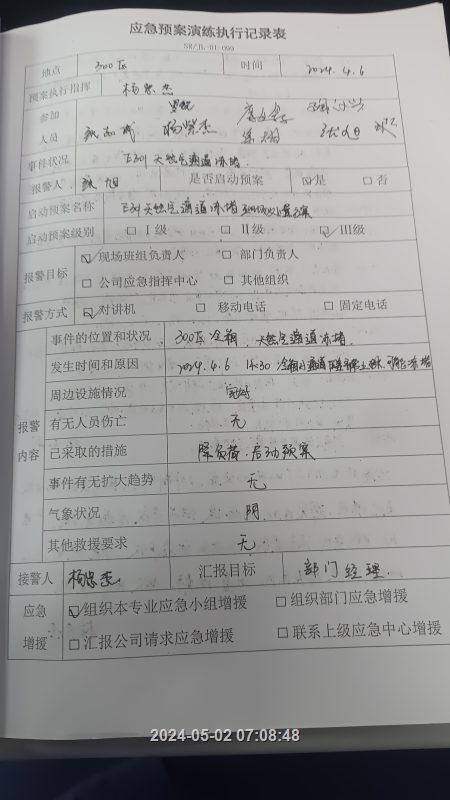 应急预案演练执行记录表
SX/JL-01-099
地点 300区 时间 2024.4.6
预案执行指挥 杨忠杰
参加
人员
事件状况 天然气通道冻堵
报警人 旭 是否启动预案 ☑是 □否
启动预案名称 天然气通道冻堵现场处置方案
启动预案级别 □Ⅰ级 □Ⅱ级 ☑Ⅲ级
报警目标 ☑现场班组负责人 □部门负责人
□公司应急指挥中心 □其他组织
报警方式 ☑对讲机 □移动电话 □固定电话
报警
内容
事件的位置和状况 300区冷箱，天然气通道冻堵.
发生时间和原因 2024.4.6 14:30 冷箱 通道
周边设施情况 完好
有无人员伤亡 无
已采取的措施 降负荷.启动预案
事件有无扩大趋势 无
气象状况 阴
其他救援要求 无
接警人 杨忠杰 汇报目标 部门经理.
应急
增援
☑组织本专业应急小组增援 □组织部门应急增援
□汇报公司请求应急增援 □联系上级应急中心增援
2024-05-02 07:08:48